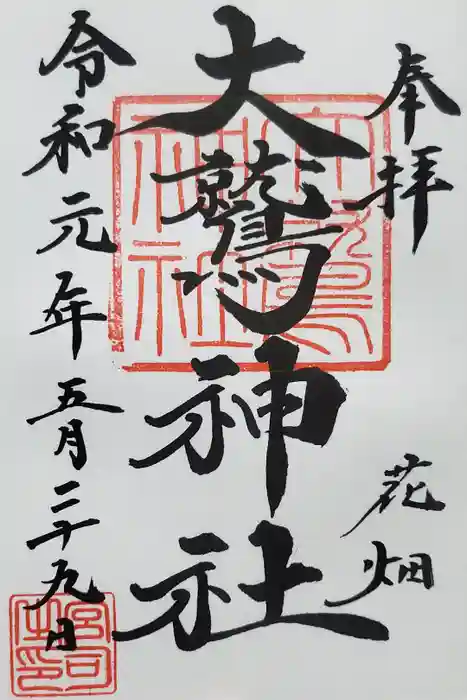 奉拝
花畑
大鷲神社
令和元年五月二十九日
宮司之印